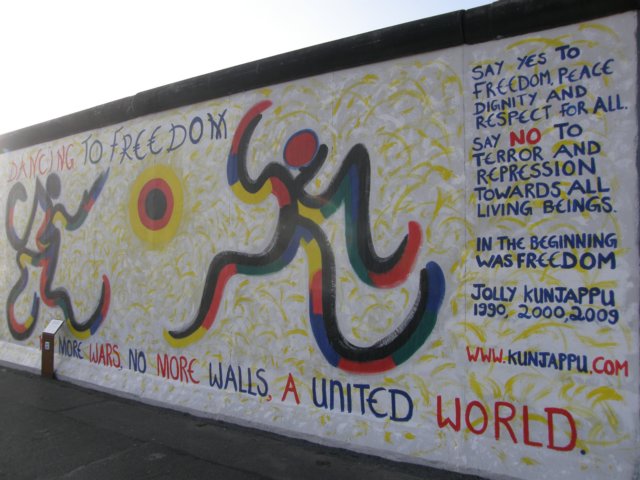 DANCING TO FREEDOM
SAY YES TO
FREEDOM, PEACE
DIGNITY AND
RESPECT FOR ALL.
SAY NO TO
TERROR AND
REPRESSION
TOWARDS ALL
LIVING BEINGS.
IN THE BEGINNING
WAS FREEDOM
JOLLY KUNJAPPU
1990, 2000, 2009
WWW.KUNJAPPU.COM
MORE WARS, NO MORE WALLS, A UNITED WORLD.